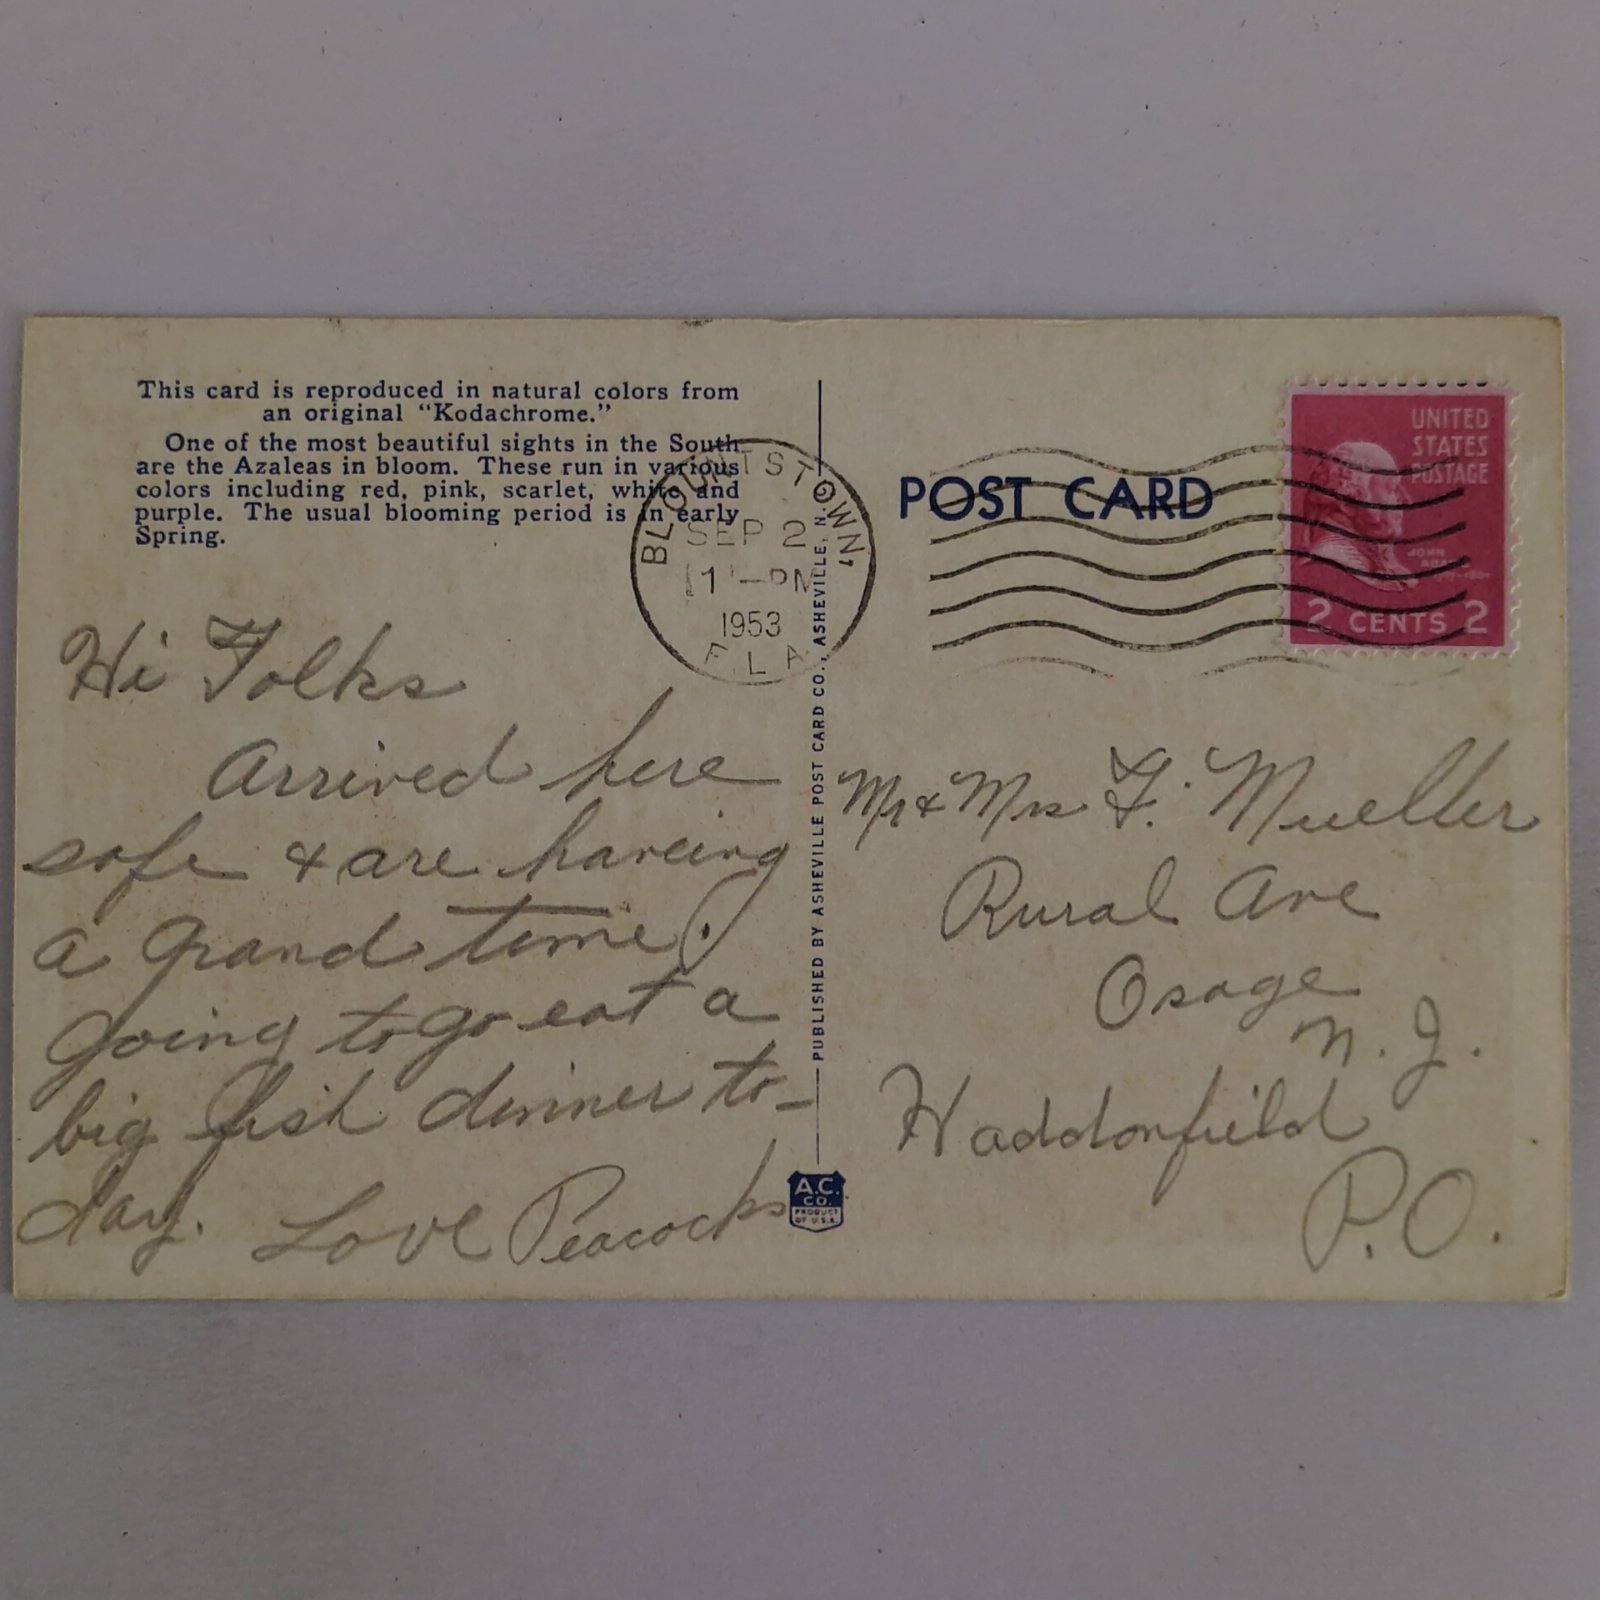 This card is reproduced in natural colors from
an original “Kodachrome.”
One of the most beautiful sights in the South
are the Azaleas in bloom. These run in various
colors including red, pink, scarlet, white and
purple. The usual blooming period is in early
Spring.
Hi Folks
Arrived here
safe & are haveing
a grand time.
Going to go eat a
big fish dinner to-
day. Love Peacocks
BLOUNTSTOWN,
SEP 2
PM
1953
FLA.
PUBLISHED BY ASHEVILLE POST CARD CO., ASHEVILLE, N.C.
A.C.
CO.
PRODUCT
OF U.S.A.
POST CARD
UNITED
STATES
POSTAGE
JOHN
2 CENTS 2
Mr & Mrs F. Mueller
Rural Ave
Osage
N. J.
Haddonfield
P.O.